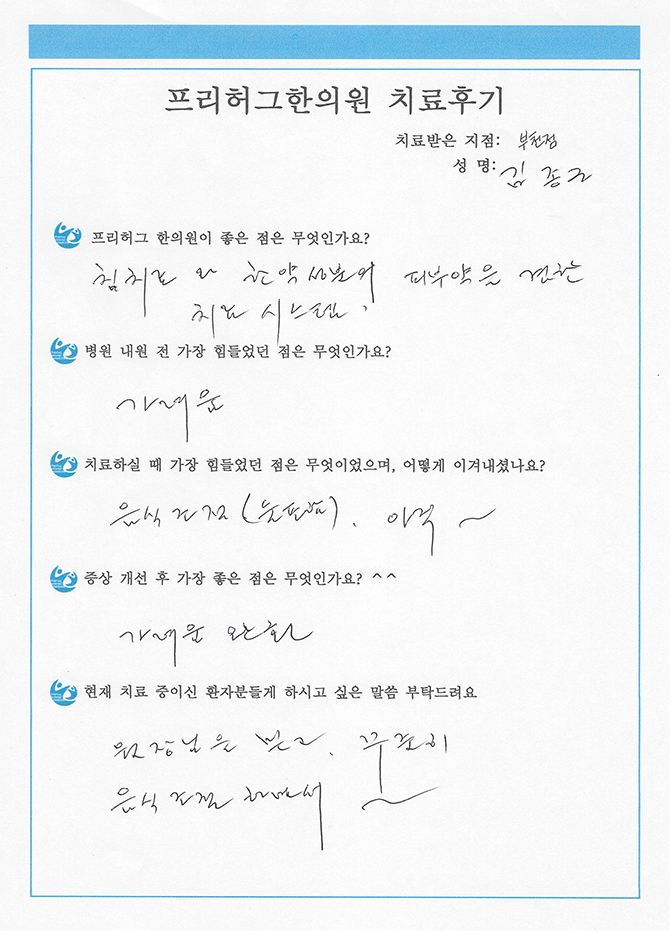 프리허그한의원 치료후기
치료받은 지점: 부천점
성 명: 김종구
프리허그 한의원이 좋은 점은 무엇인가요?
침치료 와 한약성분의 피부약을 겸한
치료 시스템.
병원 내원 전 가장 힘들었던 점은 무엇인가요?
가려움
치료하실 때 가장 힘들었던 점은 무엇이었으며, 어떻게 이겨내셨나요?
음식 조절 ( ). 인내 ~
증상 개선 후 가장 좋은 점은 무엇인가요? ^^
가려움 완화
현재 치료 중이신 환자분들게 하시고 싶은 말씀 부탁드려요
원장님을 믿고. 꾸준히
음식 조절 하면서 ~